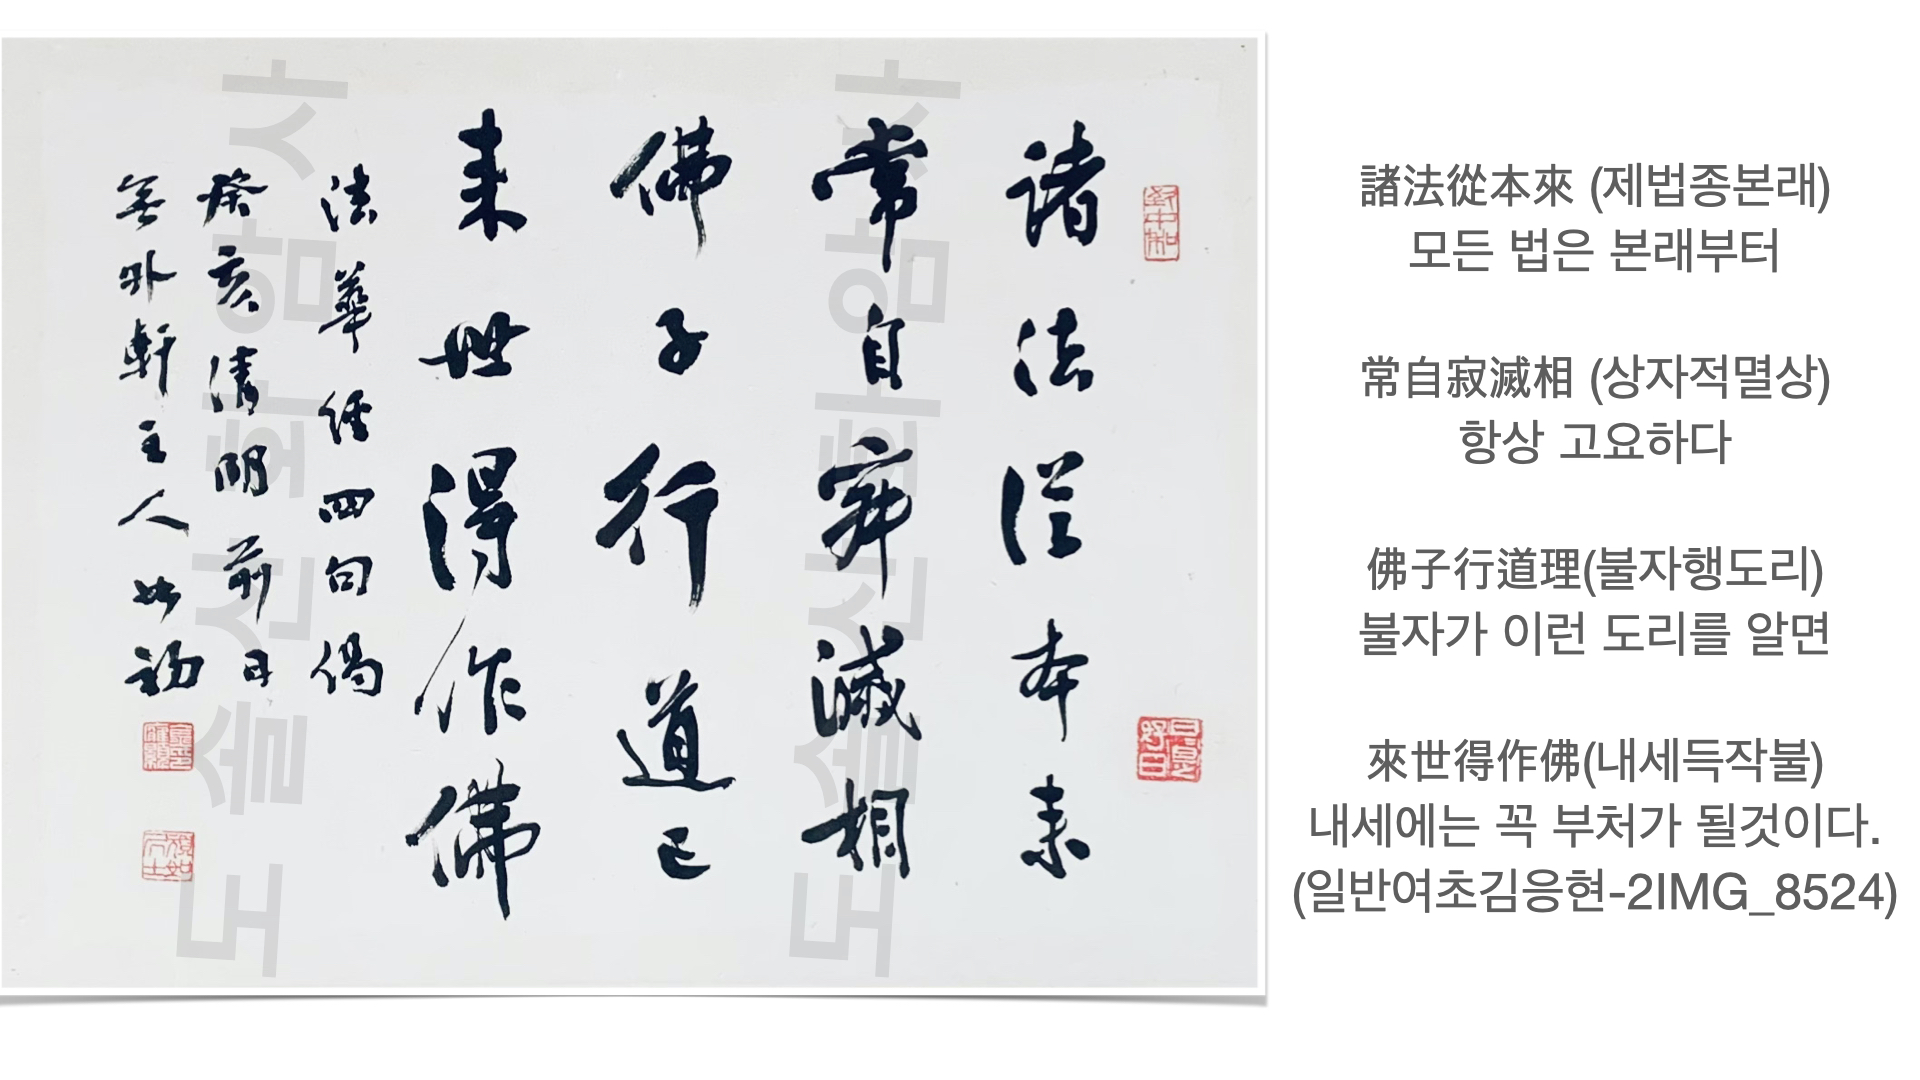 諸法從本来
常自寂滅相
佛子行道已
来世得作佛
法華経四句偈
癸亥清明前日
無外軒主人如初
諸法從本來 (제법종본래)
모든 법은 본래부터
常自寂滅相 (상자적멸상)
항상 고요하다
佛子行道理(불자행도리)
불자가 이런 도리를 알면
來世得作佛(내세득작불)
내세에는 꼭 부처가 될것이다.
(일반여초김응현-2IMG_8524)
도솔산화암사
도솔산화암사